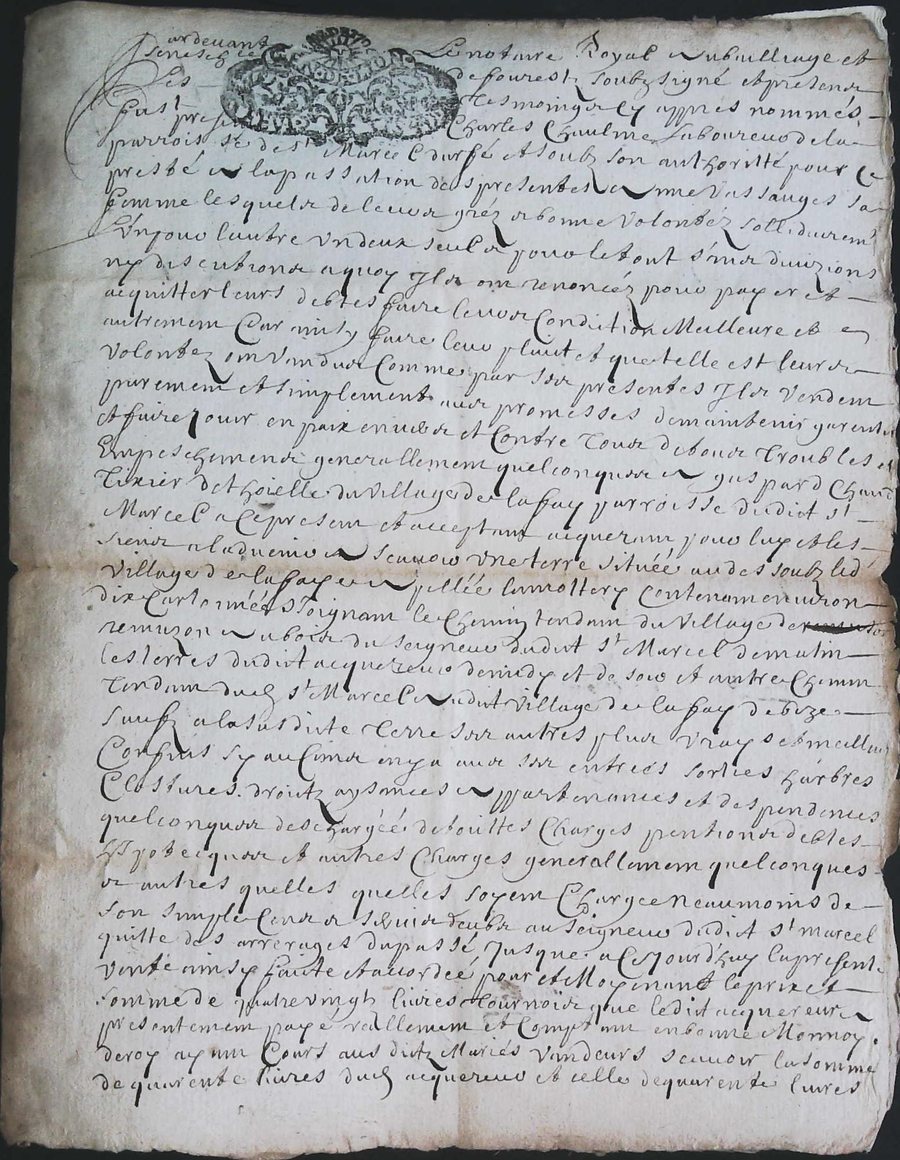 Pardevant Le notaire Royal au bailliage et
Seneschee de fourest Soubz signé et presens
Les tesmoings cy appres nommés
fust pre Charles Chaulme laboureur de la
parroisse de st Marcel durfé et soubz son authoritté pour ce
presté a la passation des presentes anne Vassauges sa
femme lesquels de leurs gréz et bonne Volontéz sollidairemt
L'un pour lautre un deux seul pour le tout sans divizions
ny discutions a quoy Ils ont renoncéz pour payer et
acquitter leurs debtes faire leurs Condition Meilleure et
autrement Car ainsy faire leur plaict et que telle est leurs
Volontéz ont Vandus Comme par ses presentes Ils Vendent
purement et simplement avec promesses de maintenir garentir
et faire Jouir en paix envers et Contre Tous de tous Troubles et
Empeschemens generallement quelconques a gaspard Chaud
Tixier de thoielle du Village de la fay parroisse dudict st
Marcel a Ce present et acceptant acquerant pour luy et les
siens a ladvenir a Scavoir une terre située au dessoubz led
Village de la faye appellée lamottery Contenant environ
dix Cartonnées Joignant le Chemin tendant du Village de
remuzon au bois du Seigneur dudict st Marcel de matin
les terres dudict acquereur de midy et de soir et autre Chemin
Tendant dud st Marcel audict Village de la fay de bize
Saufz a la susdicte Terre ses autres plus Vrays et meilleurs
Confins sy aulcuns en y a avec ses entrées sorties harbres
Clostures droitz aysances appartenances et despendences
quelconques deschargée de touttes Charges pentions debtes
hypotecques et autres Charges generallement quelconques
et autres quelles quelles soyent Chargée neaumoins de
son simple Cens et servis deubz au Seigneur dudict st marcel
quitte des arrerages du passé Jusque a Cejourdhuy la present
Vente ainsy faite et accordée pour et Moyenant le prix et
somme de quatre vingt livres Tournois que ledict acquereur a
presentement payé reallement et Comptant en bonne Monnoy
de roy ayant Cours ausdictz Mariés Vandeurs scavoir la somme
de quarente livres dud acquereur et celle de quarente livres